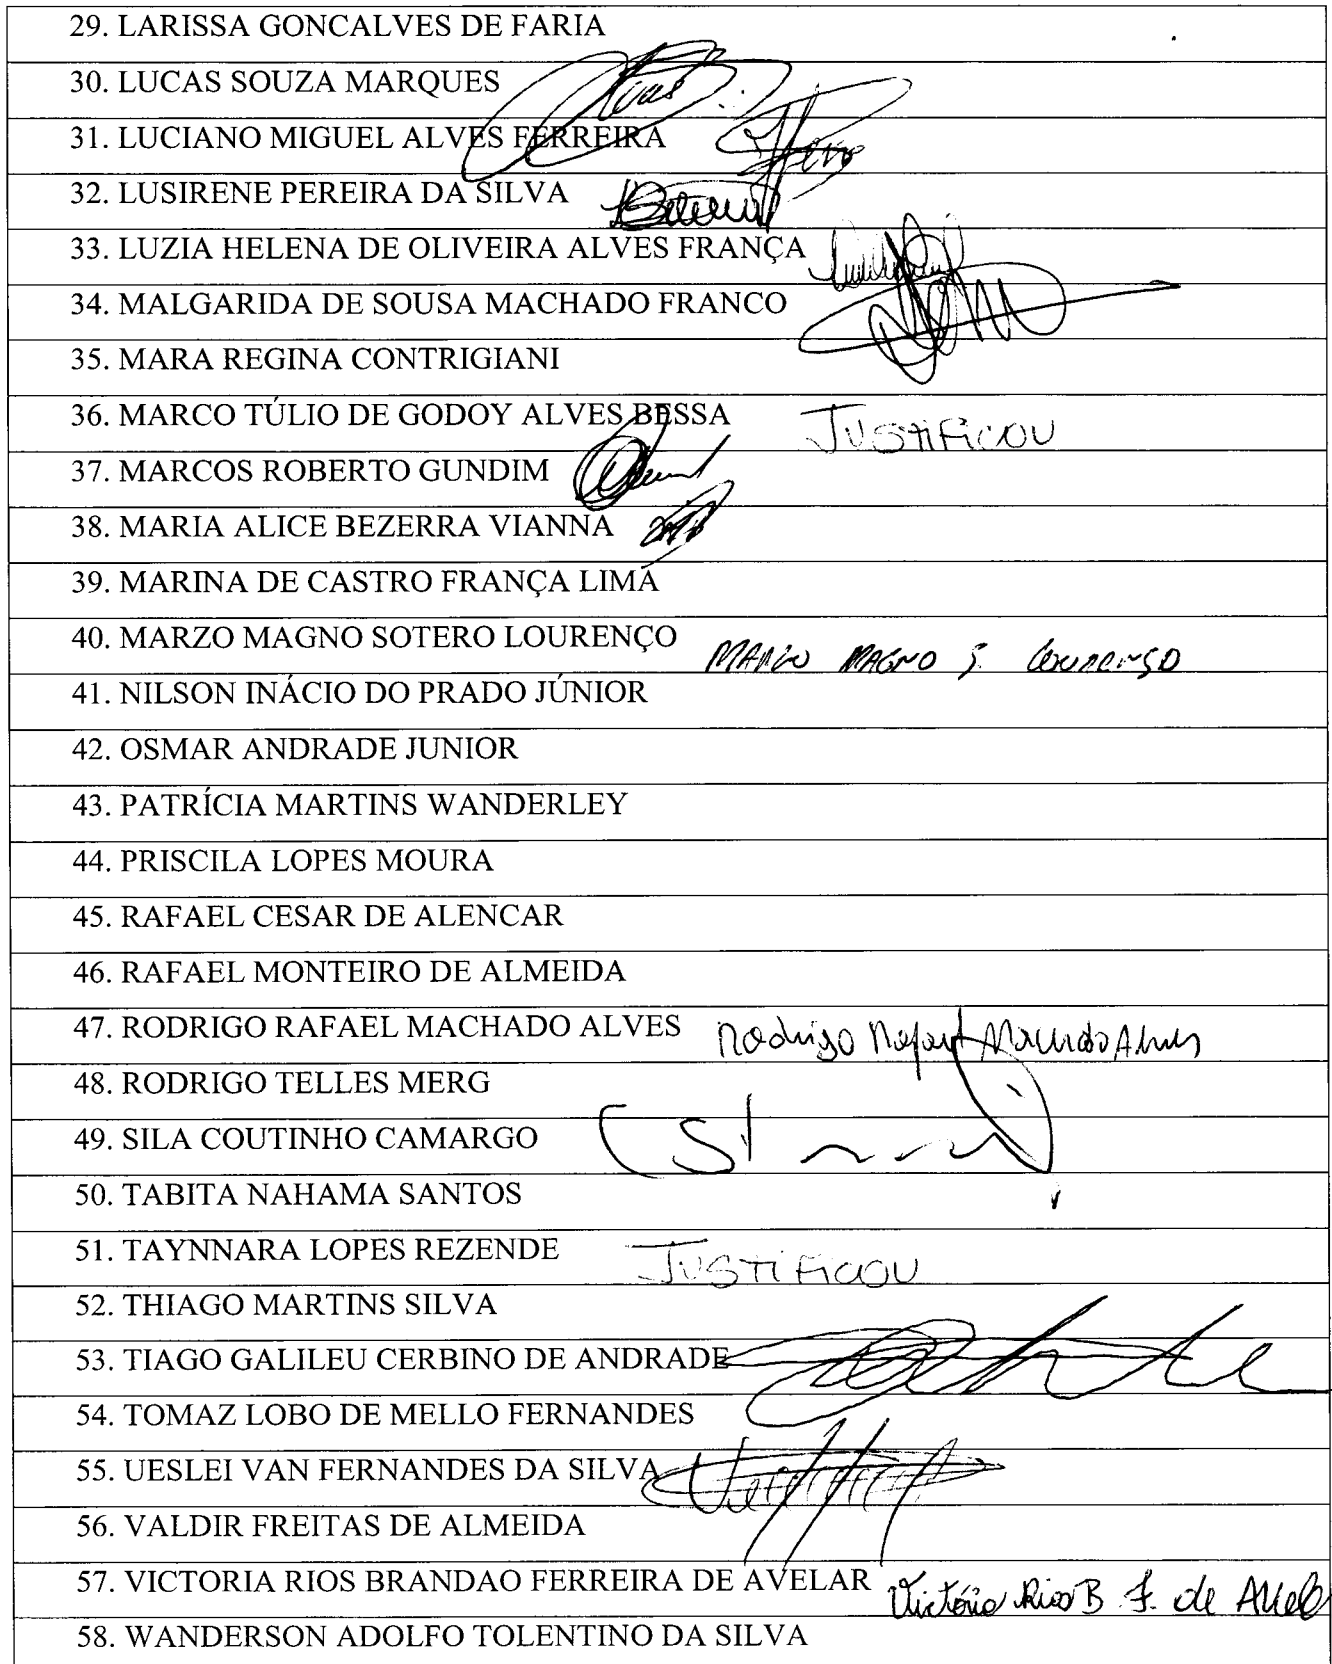 29. LARISSA GONCALVES DE FARIA
30. LUCAS SOUZA MARQUES
31. LUCIANO MIGUEL ALVES FERREIRA
32. LUSIRENE PEREIRA DA SILVA
33. LUZIA HELENA DE OLIVEIRA ALVES FRANÇA
34. MALGARIDA DE SOUSA MACHADO FRANCO
35. MARA REGINA CONTRIGIANI
36. MARCO TÚLIO DE GODOY ALVES BESSA JUSTIFICOU
37. MARCOS ROBERTO GUNDIM
38. MARIA ALICE BEZERRA VIANNA
39. MARINA DE CASTRO FRANÇA LIMA
40. MARZO MAGNO SOTERO LOURENÇO MARZO MAGNO S. LOURENÇO
41. NILSON INÁCIO DO PRADO JÚNIOR
42. OSMAR ANDRADE JUNIOR
43. PATRÍCIA MARTINS WANDERLEY
44. PRISCILA LOPES MOURA
45. RAFAEL CESAR DE ALENCAR
46. RAFAEL MONTEIRO DE ALMEIDA
47. RODRIGO RAFAEL MACHADO ALVES Rodrigo Rafael Machado Alves
48. RODRIGO TELLES MERG
49. SILA COUTINHO CAMARGO
50. TABITA NAHAMA SANTOS
51. TAYNNARA LOPES REZENDE JUSTIFICOU
52. THIAGO MARTINS SILVA
53. TIAGO GALILEU CERBINO DE ANDRADE
54. TOMAZ LOBO DE MELLO FERNANDES
55. UESLEI VAN FERNANDES DA SILVA
56. VALDIR FREITAS DE ALMEIDA
57. VICTORIA RIOS BRANDAO FERREIRA DE AVELAR Victória Rios B F. de Avela
58. WANDERSON ADOLFO TOLENTINO DA SILVA